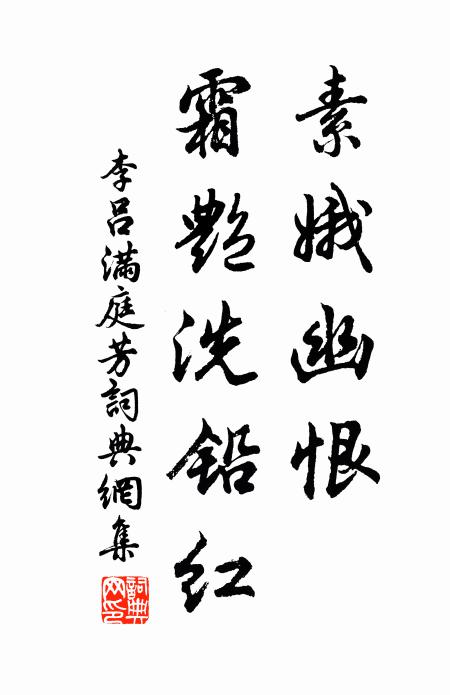 素娥幽恨
霜艷洗鉛紅
李吕滿庭芳詞典網集
詞典网印